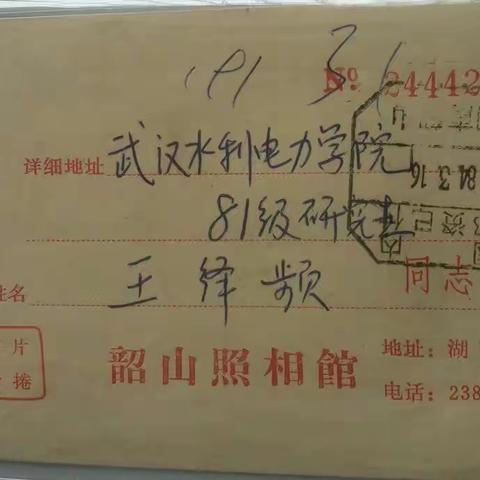 191 31
No 24442
详细地址 武汉水利电力学院
81级研究生
姓名 王绎频 同志
84.3.16
韶山照相館
地址：湖
电话：238
片
捲